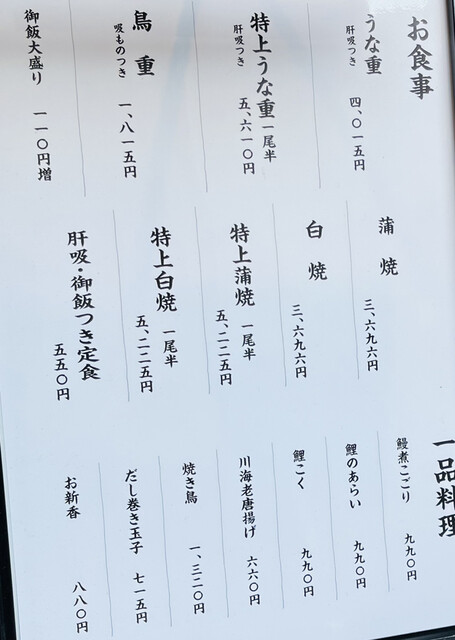 お食事
うな重
肝吸つき
四、〇一五円
特上うな重 一尾半
肝吸つき
五、六一〇円
鳥重
吸ものつき
一、八一五円
御飯大盛り 一一〇円増
蒲焼
三、六九六円
白焼
三、六九六円
特上蒲焼 一尾半
五、二二五円
特上白焼 一尾半
五、二二五円
肝吸・御飯つき定食
五五〇円
一品料理
鰻煮こごり 九九〇円
鯉のあらい 九九〇円
鯉こく 九九〇円
川海老唐揚げ 六六〇円
焼き鳥 一、三二〇円
だし巻き玉子 七一五円
お新香 八八〇円